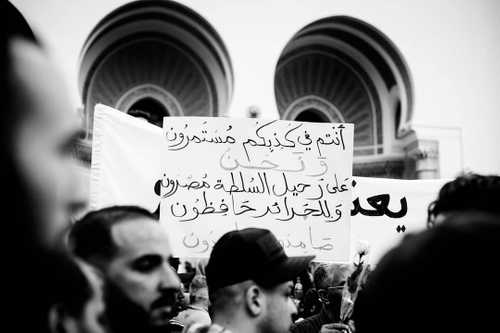 أنتم في كَذِبِكُم مُسْتَمِرُون
وَنَحْنُ
عَلَى رَحِيل السُّلْطَة مُصْرُون
وَلِلْجَزَائِر حَافِظُون
صَامِدُون
يعني